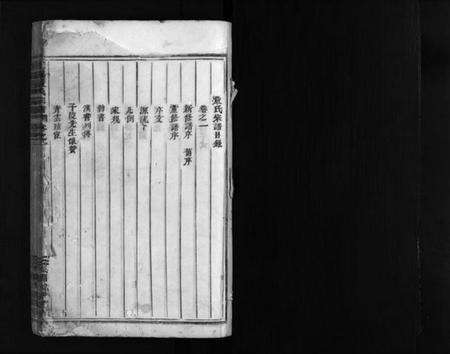 氏宗譜目錄
卷之一
新修譜序 舊序
重修譜序
序文
源流
凡例
家規
勅書
漢書列傳
子陵先生像贊